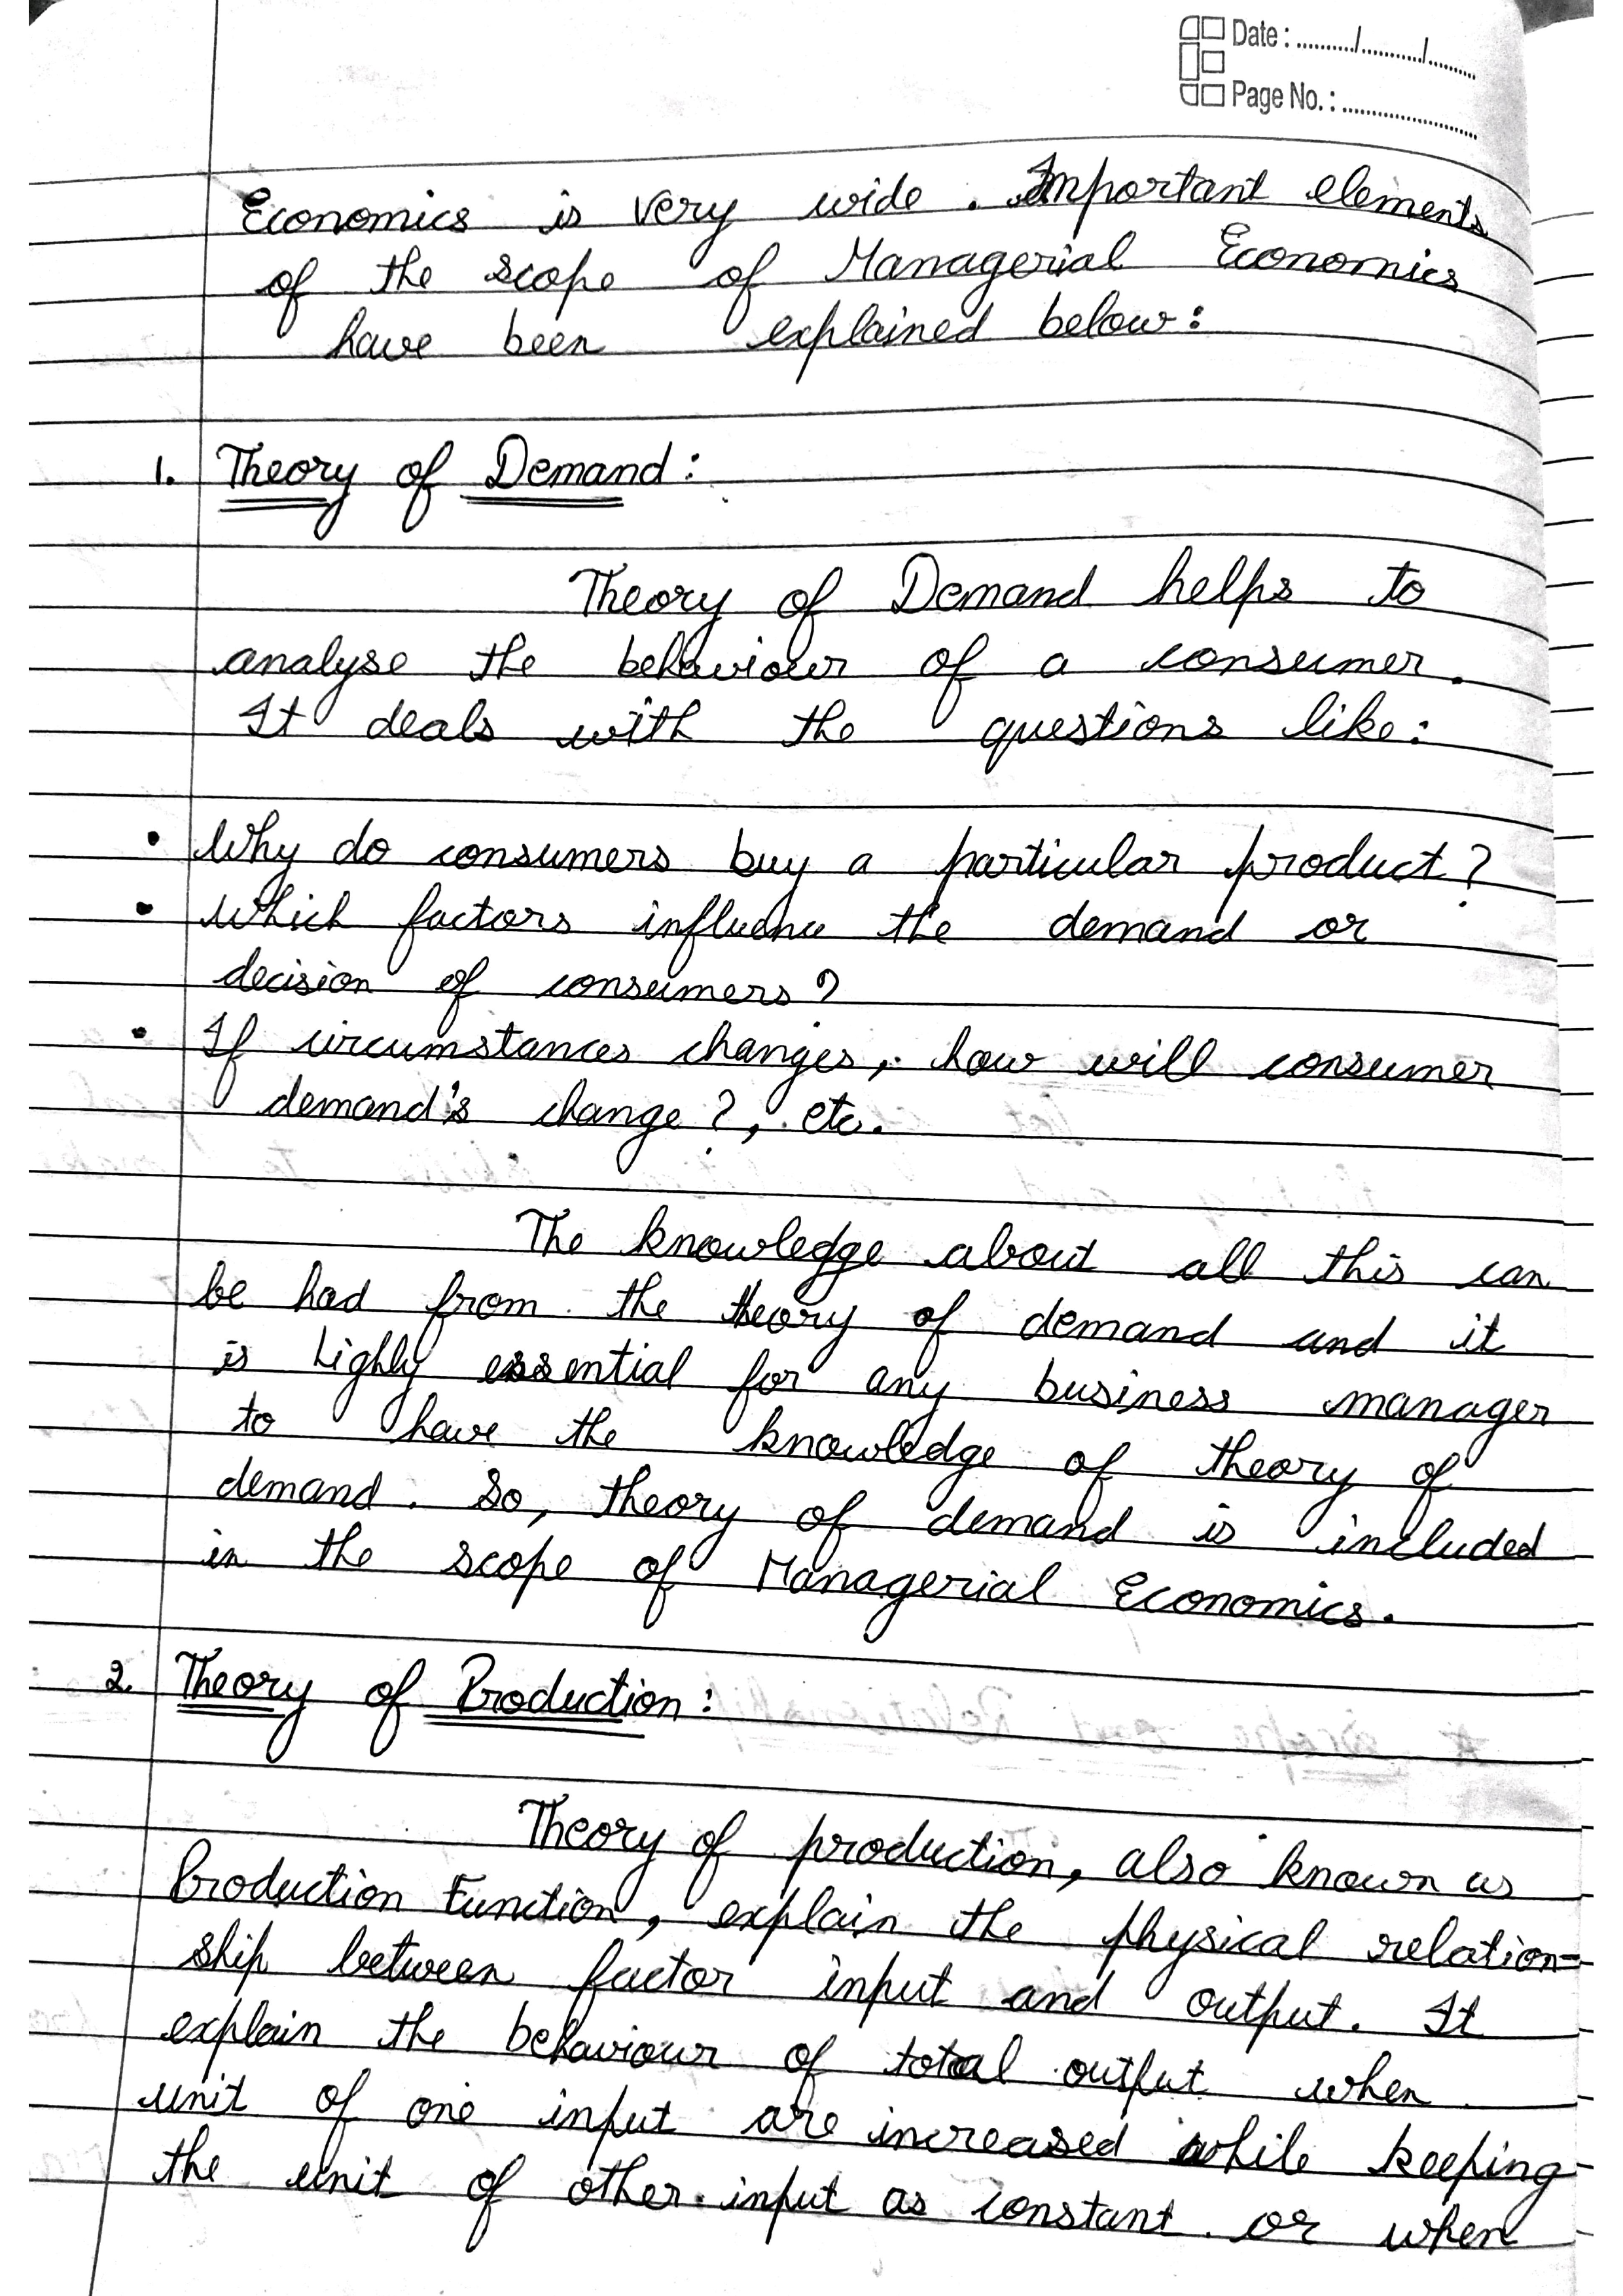 Date : ........../........../..........
Page No. : ......................
Economics is very wide . Important elements
of the scope of Managerial Economics
have been explained below:
1. Theory of Demand :
Theory of Demand helps to
analyse the behaviour of a consumer.
It deals with the questions like:
• Why do consumers buy a particular product?
• Which factors influence the demand or
decision of consumers?
• If circumstances changes, how will consumer
demand's change?, etc.
The knowledge about all this can
be had from the theory of demand and it
is highly essential for any business manager
to have the knowledge of theory of
demand. So, theory of demand is included
in the scope of Managerial Economics.
2. Theory of Production :
Theory of production, also known as
Production Function, explain the physical relation-
ship between factor input and output. It
explain the behaviour of total output when
unit of one input are increased while keeping
the unit of other input as constant or when